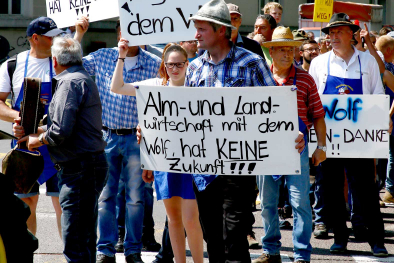 hat K
dem W
Alm-und Land-
wirtschaft mit dem
Wolf, hat KEINE
Zukunft!!!
Wolf
EN-DANKE
!!